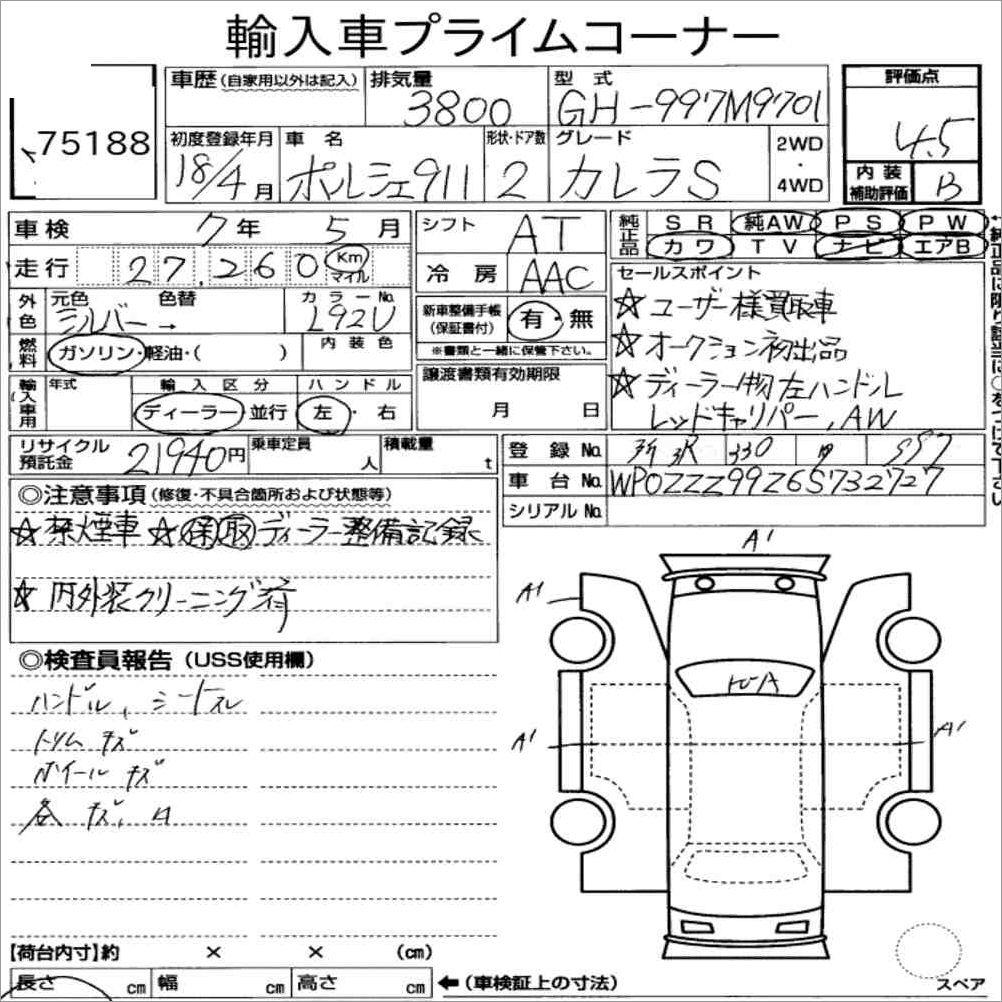 輸入車プライムコーナー
75188
車歴(自家用以外は記入) 排気量 3800 型式 GH-997M9701 評価点 4.5
初度登録年月 18/4月 車名 ポルシェ911 形状・ドア数 2 グレード カレラS 2WD・4WD 内装補助評価 B
車検 7年 5月 シフト AT 純正品 SR 純AW PS PW
走行 27,260 Km マイル 冷房 AAC カワ TV ナビ エアB
外色 元色 シルバー→ 色替 カラーNo. L92U 内装色
燃料 ガソリン・軽油・( )
新車整備手帳(保証書付) 有・無
※書類と一緒に保管下さい。
輸入車用 年式 輸入区分 ディーラー 並行 ハンドル 左・右
譲渡書類有効期限 月 日
セールスポイント
☆ユーザー様買取車
☆オークション初出品
☆ディーラー物左ハンドル
レッドキャリパー,AW
リサイクル預託金 21940円 乗車定員 人 積載量 t
登録No. 所沢 330 997
車台No. WP0ZZZ99Z6S732727
シリアルNo.
◎注意事項(修復・不具合箇所および状態等)
☆禁煙車 ☆保取ディーラー整備記録
☆内外装クリーニング済
◎検査員報告(USS使用欄)
ハンドル、シートスレ
トリムキズ
ホイールキズ
各キズ、
A1
A1
A1
A1
【荷台内寸】約 × × (cm)
長さ cm 幅 cm 高さ cm ←(車検証上の寸法)
スペア